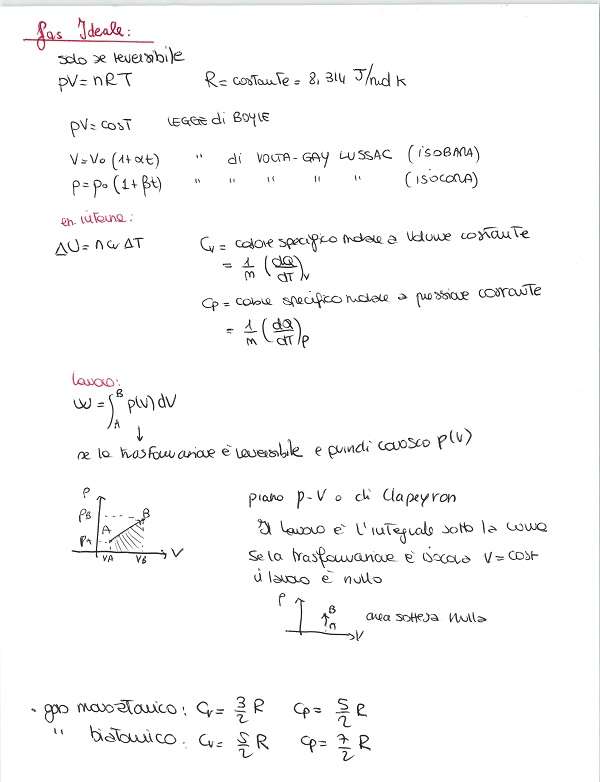 Gas Ideale:
solo se reversibile
pV = nRT R = costante = 8,314 J/mol K
pV = cost LEGGE di BOYLE
V = V₀ (1 + αt) " di VOLTA-GAY LUSSAC (ISOBARA)
p = p₀ (1 + βt) " " " " " (ISOCORA)
en. interna:
ΔU = n cv ΔT Cv = calore specifico molare a volume costante
= 1/m (dQ/dT)v
Cp = calore specifico molare a pressione costante
= 1/m (dQ/dT)p
lavoro:
W = ∫_A^B p(V) dV
↓
se la trasformazione è reversibile e quindi conosco p(V)
p
pB B
A
pA
VA VB V
piano p-V o di Clapeyron
Il lavoro è l'integrale sotto la curva
Se la trasformazione è isocora V = cost
il lavoro è nullo
p
B
A
V
area sottesa nulla
• gas monoatomico: Cv = 3/2 R Cp = 5/2 R
" biatomico: Cv = 5/2 R Cp = 7/2 R